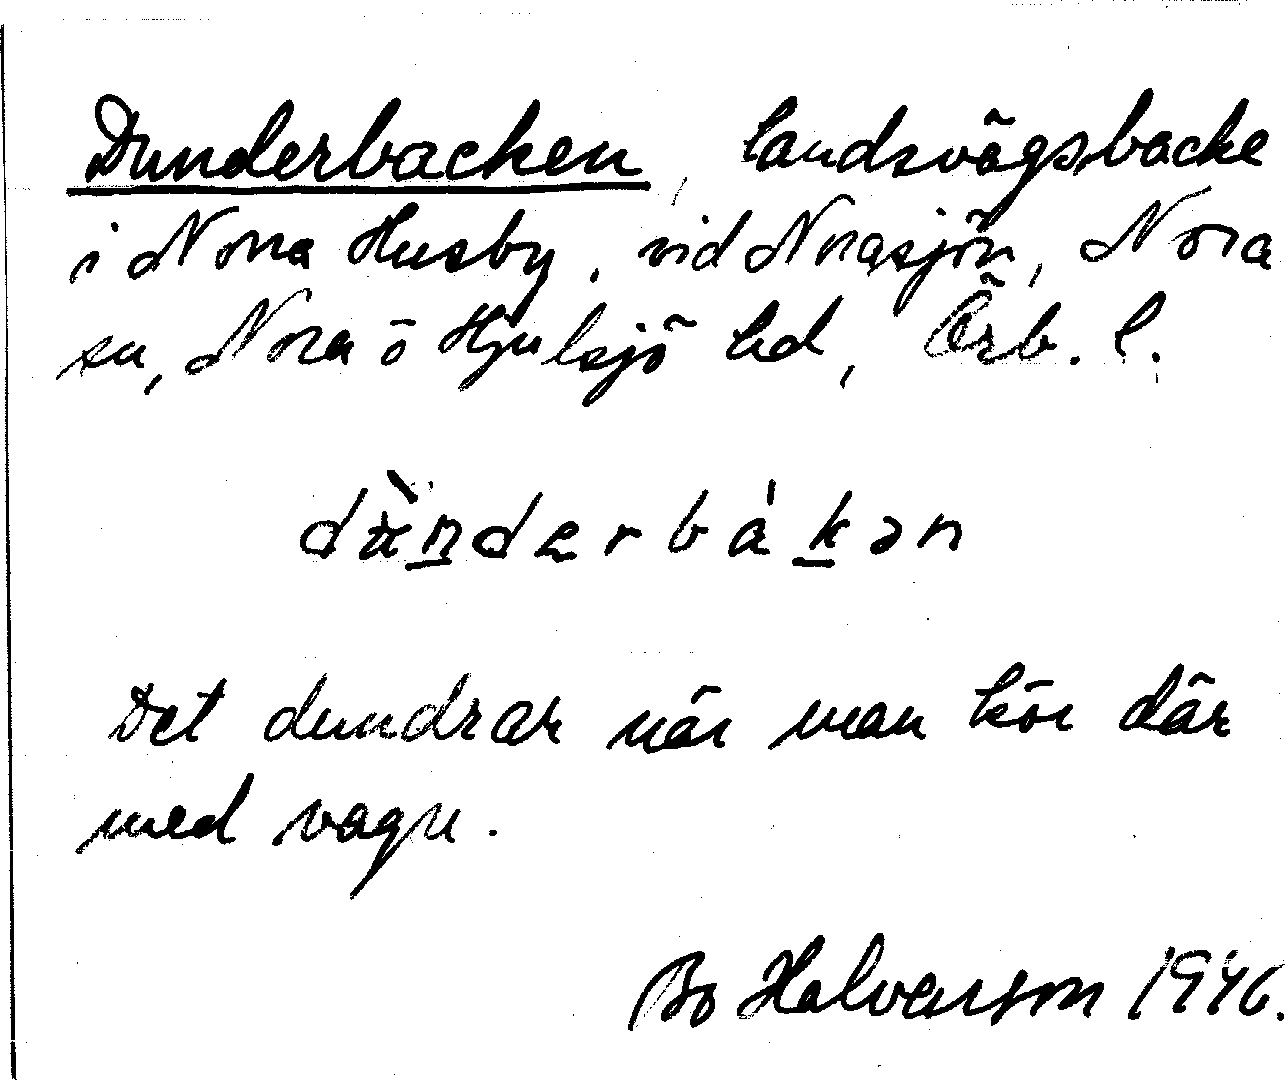 Dunderbacken, landsvägsbacke
i Nora Husby, vid Norasjön, Nora
sn, Nora o Hjulsjö hd, Örb. l.
Det dundrar när man kör där
med vagn.
Bo Halvarson 1946.